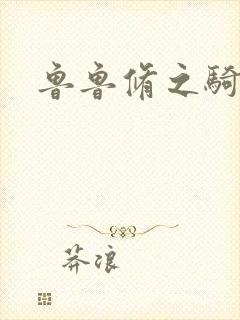 魯魯脩之騎
莽浪